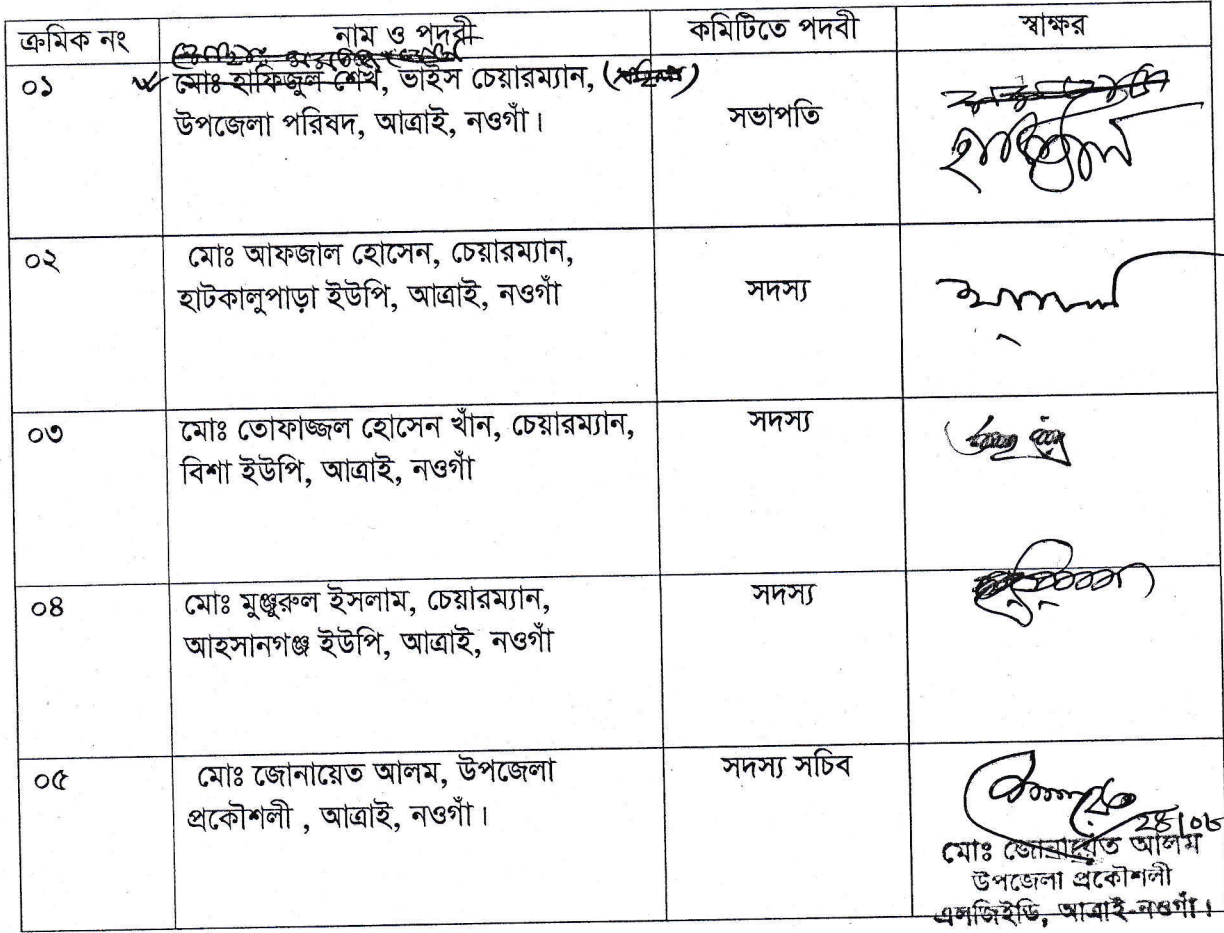 ক্রমিক নং নাম ও পদবী কমিটিতে পদবী স্বাক্ষর
০১ মোঃ হাফিজুল শেখ, ভাইস চেয়ারম্যান,
উপজেলা পরিষদ, আত্রাই, নওগাঁ। সভাপতি
০২ মোঃ আফজাল হোসেন, চেয়ারম্যান,
হাটকালুপাড়া ইউপি, আত্রাই, নওগাঁ সদস্য
০৩ মোঃ তোফাজ্জল হোসেন খাঁন, চেয়ারম্যান, সদস্য
বিশা ইউপি, আত্রাই, নওগাঁ
০৪ মোঃ মুঞ্জুরুল ইসলাম, চেয়ারম্যান, সদস্য
আহসানগঞ্জ ইউপি, আত্রাই, নওগাঁ
০৫ মোঃ জোনায়েত আলম, উপজেলা সদস্য সচিব
প্রকৌশলী , আত্রাই, নওগাঁ।
মোঃ জোনায়েত আলম
উপজেলা প্রকৌশলী
এলজিইডি, আত্রাই-নওগাঁ।